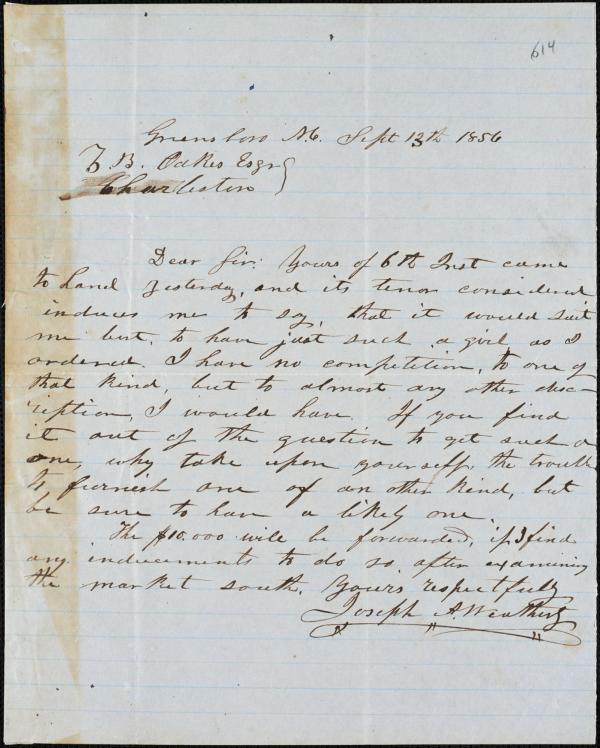 614
Greensboro N.C. Sept 13th 1856
Z B. Oakes Esqr
Charleston
Dear Sir: Yours of 6th Inst came
to hand yesterday, and its tenor considered
induces me to say, that it would suit
me best, to have just such a girl as I
ordered. I have no competition, to one of
that kind, but to almost any other disc-
ription, I would have. If you find
it out of the question to get such a
one, why take upon yourself, the trouble
to furnish one of an other kind, but
be sure to have a likely one.
The $10.000 will be forwarded, if I find
any inducements to do so, after examining
the market south. Yours respectfully
Joseph A. Weatherly